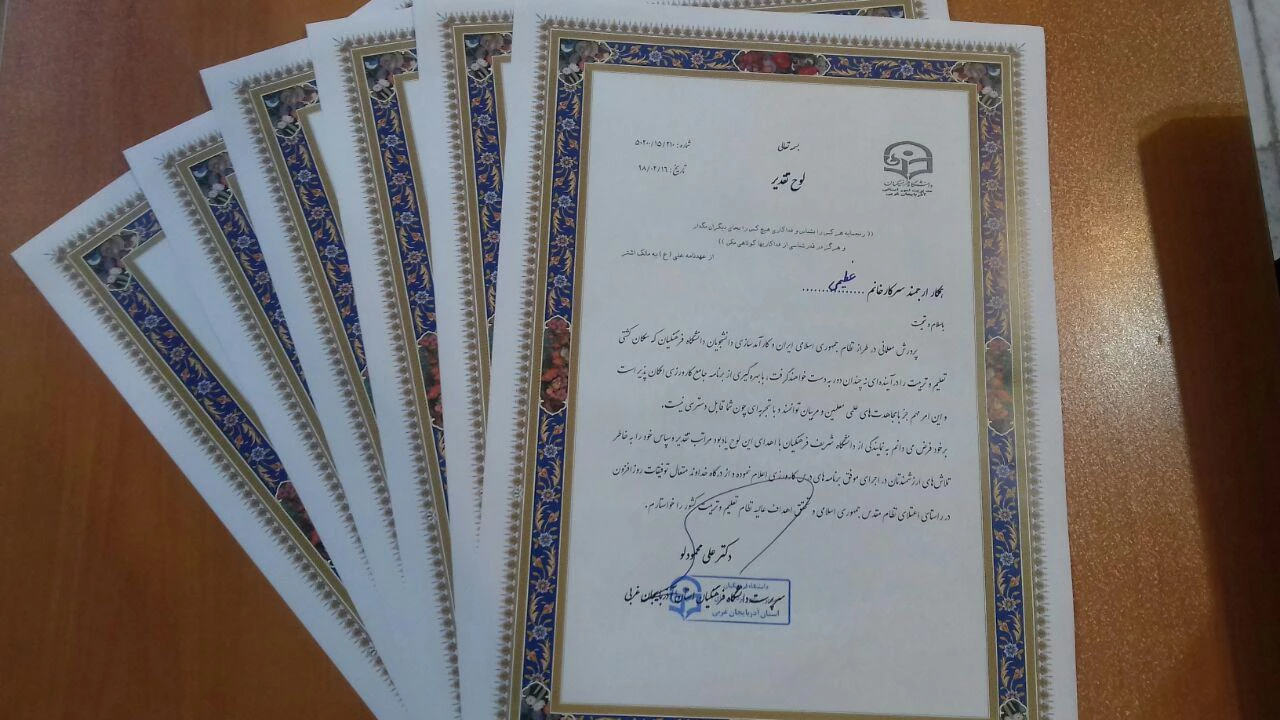 بسمه تعالی
شماره: ۵۰۲۰۰/۱۵/۲۱۰
تاریخ: ۹۸/۰۲/۱۶
لوح تقدیر
دانشگاه فرهنگیان
آذربایجان غربی
(( رنج‌مایه هر کس را بشناس و فداکاری هیچ کس را بجای دیگران نگذار
و هرگز در قدرشناسی از فداکاریها کوتاهی مکن ))
از عهدنامه علی (ع) به مالک اشتر
همکار ارجمند سرکار خانم عظیمی
باسلام و تحیت
پرورش معلمانی در طراز نظام جمهوری اسلامی ایران و کارآمدسازی دانشجویان دانشگاه فرهنگیان که سکان کشتی
تعلیم و تربیت را در آینده‌ای نه چندان دور به دست خواهند گرفت، با بهره گیری از برنامه جامع کارورزی امکان پذیر است
و این امر مهم جز با مجاهدت‌های علمی معلمین و مربیان توانمند و با تجربه‌ای چون شما قابل دسترسی نیست.
برخود فرض می دانم به نمایندگی از دانشگاه شریف فرهنگیان با اهدای این لوح یادبود مراتب تقدیر و سپاس خود را به خاطر
تلاش‌های ارزشمندتان در اجرای موفق برنامه‌های درس کارورزی اعلام نموده و از درگاه خداوند متعال توفیقات روزافزون
در راستای اعتلای نظام مقدس جمهوری اسلامی و تحقق اهداف عالیه نظام تعلیم و تربیت کشور را خواستارم.
دکتر علی محمودلو
سرپرست دانشگاه فرهنگیان استان آذربایجان غربی
دانشگاه فرهنگیان
استان آذربایجان غربی